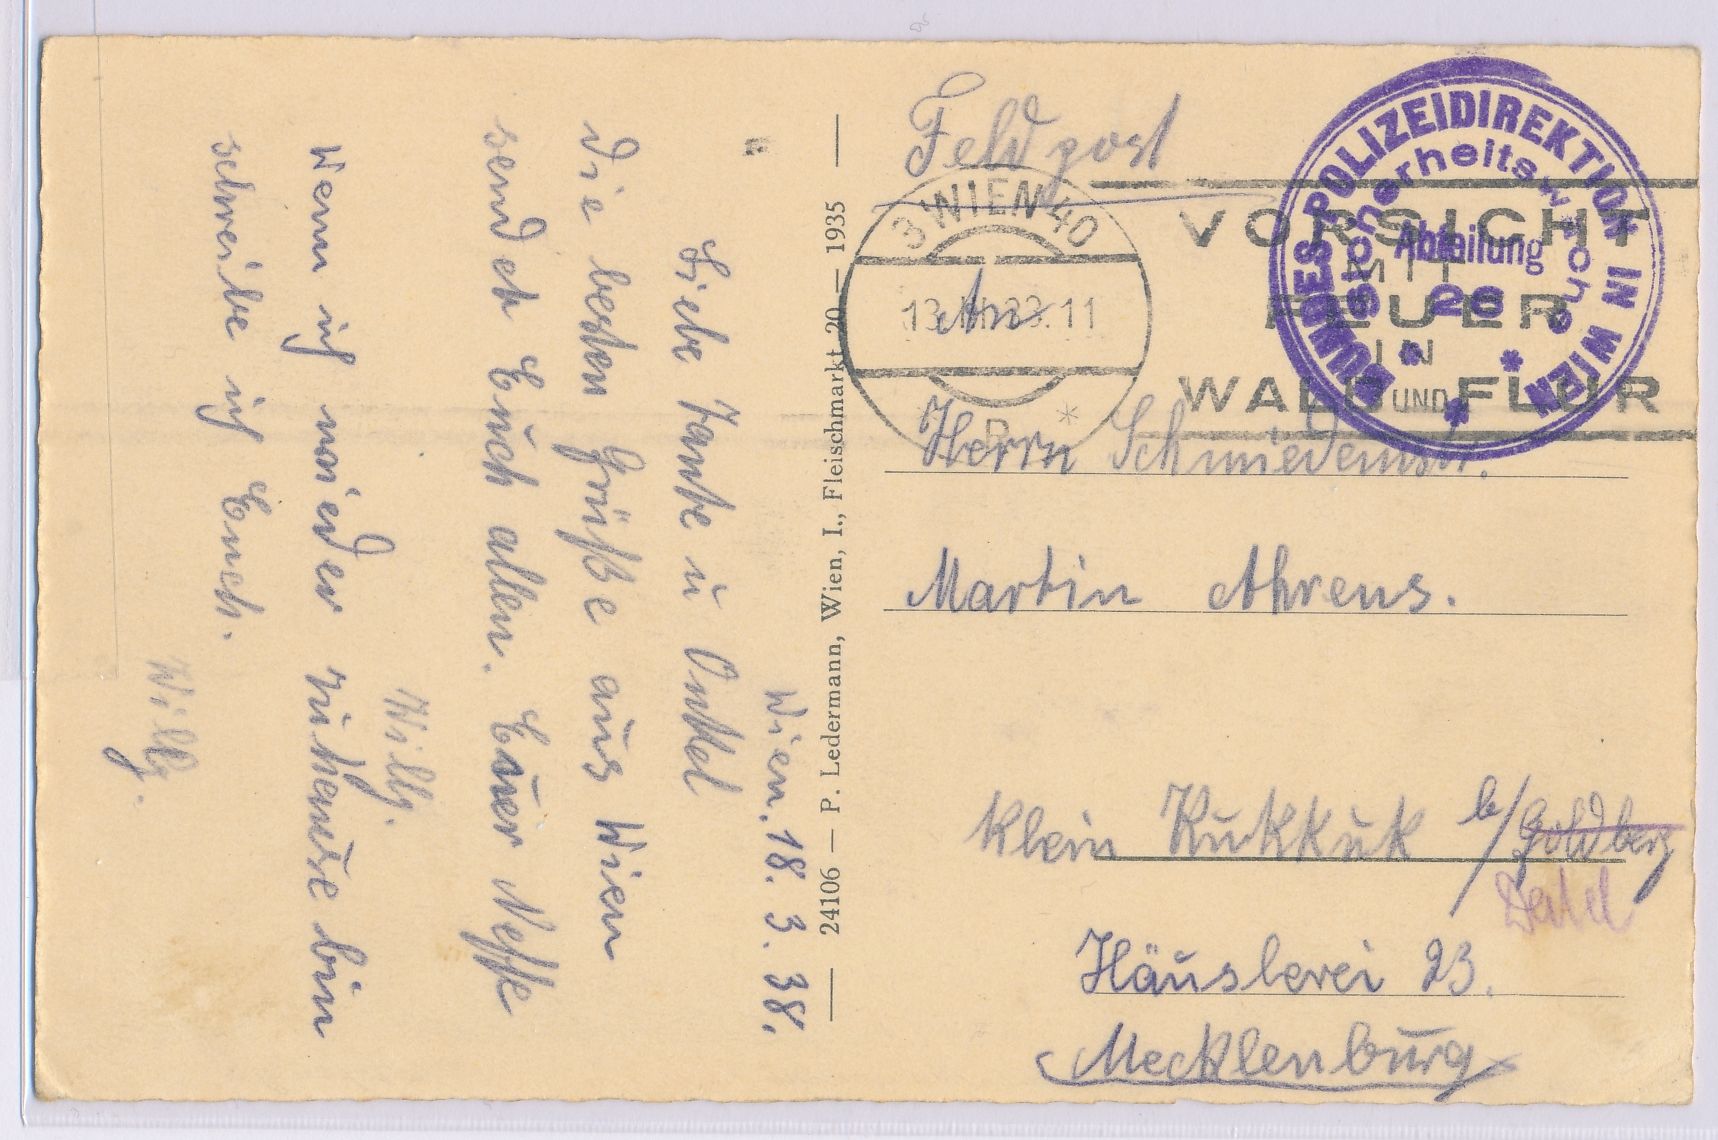 Feldpost
3 WIEN 40
VORSICHT
MIT
FEUER
IN
WALD UND FLUR
BUNDES-POLIZEIDIREKTION IN WIEN
Sicherheitswache
Abteilung
26
An
Herrn Schmiedemstr.
Martin Ahrens.
Klein Kukkuk b/Goldberg
Häuslerei 23.
Mecklenburg
24106 — P. Ledermann, Wien, I., Fleischmarkt 20 — 1935
Wien. 18. 3. 38.
Liebe Tante u Onkel
Die besten Grüße aus Wien
sendet Euch allen. Euer Neffe
Willy.
Wenn ich wieder zuhause bin
schreibe ich Euch.
Willy.